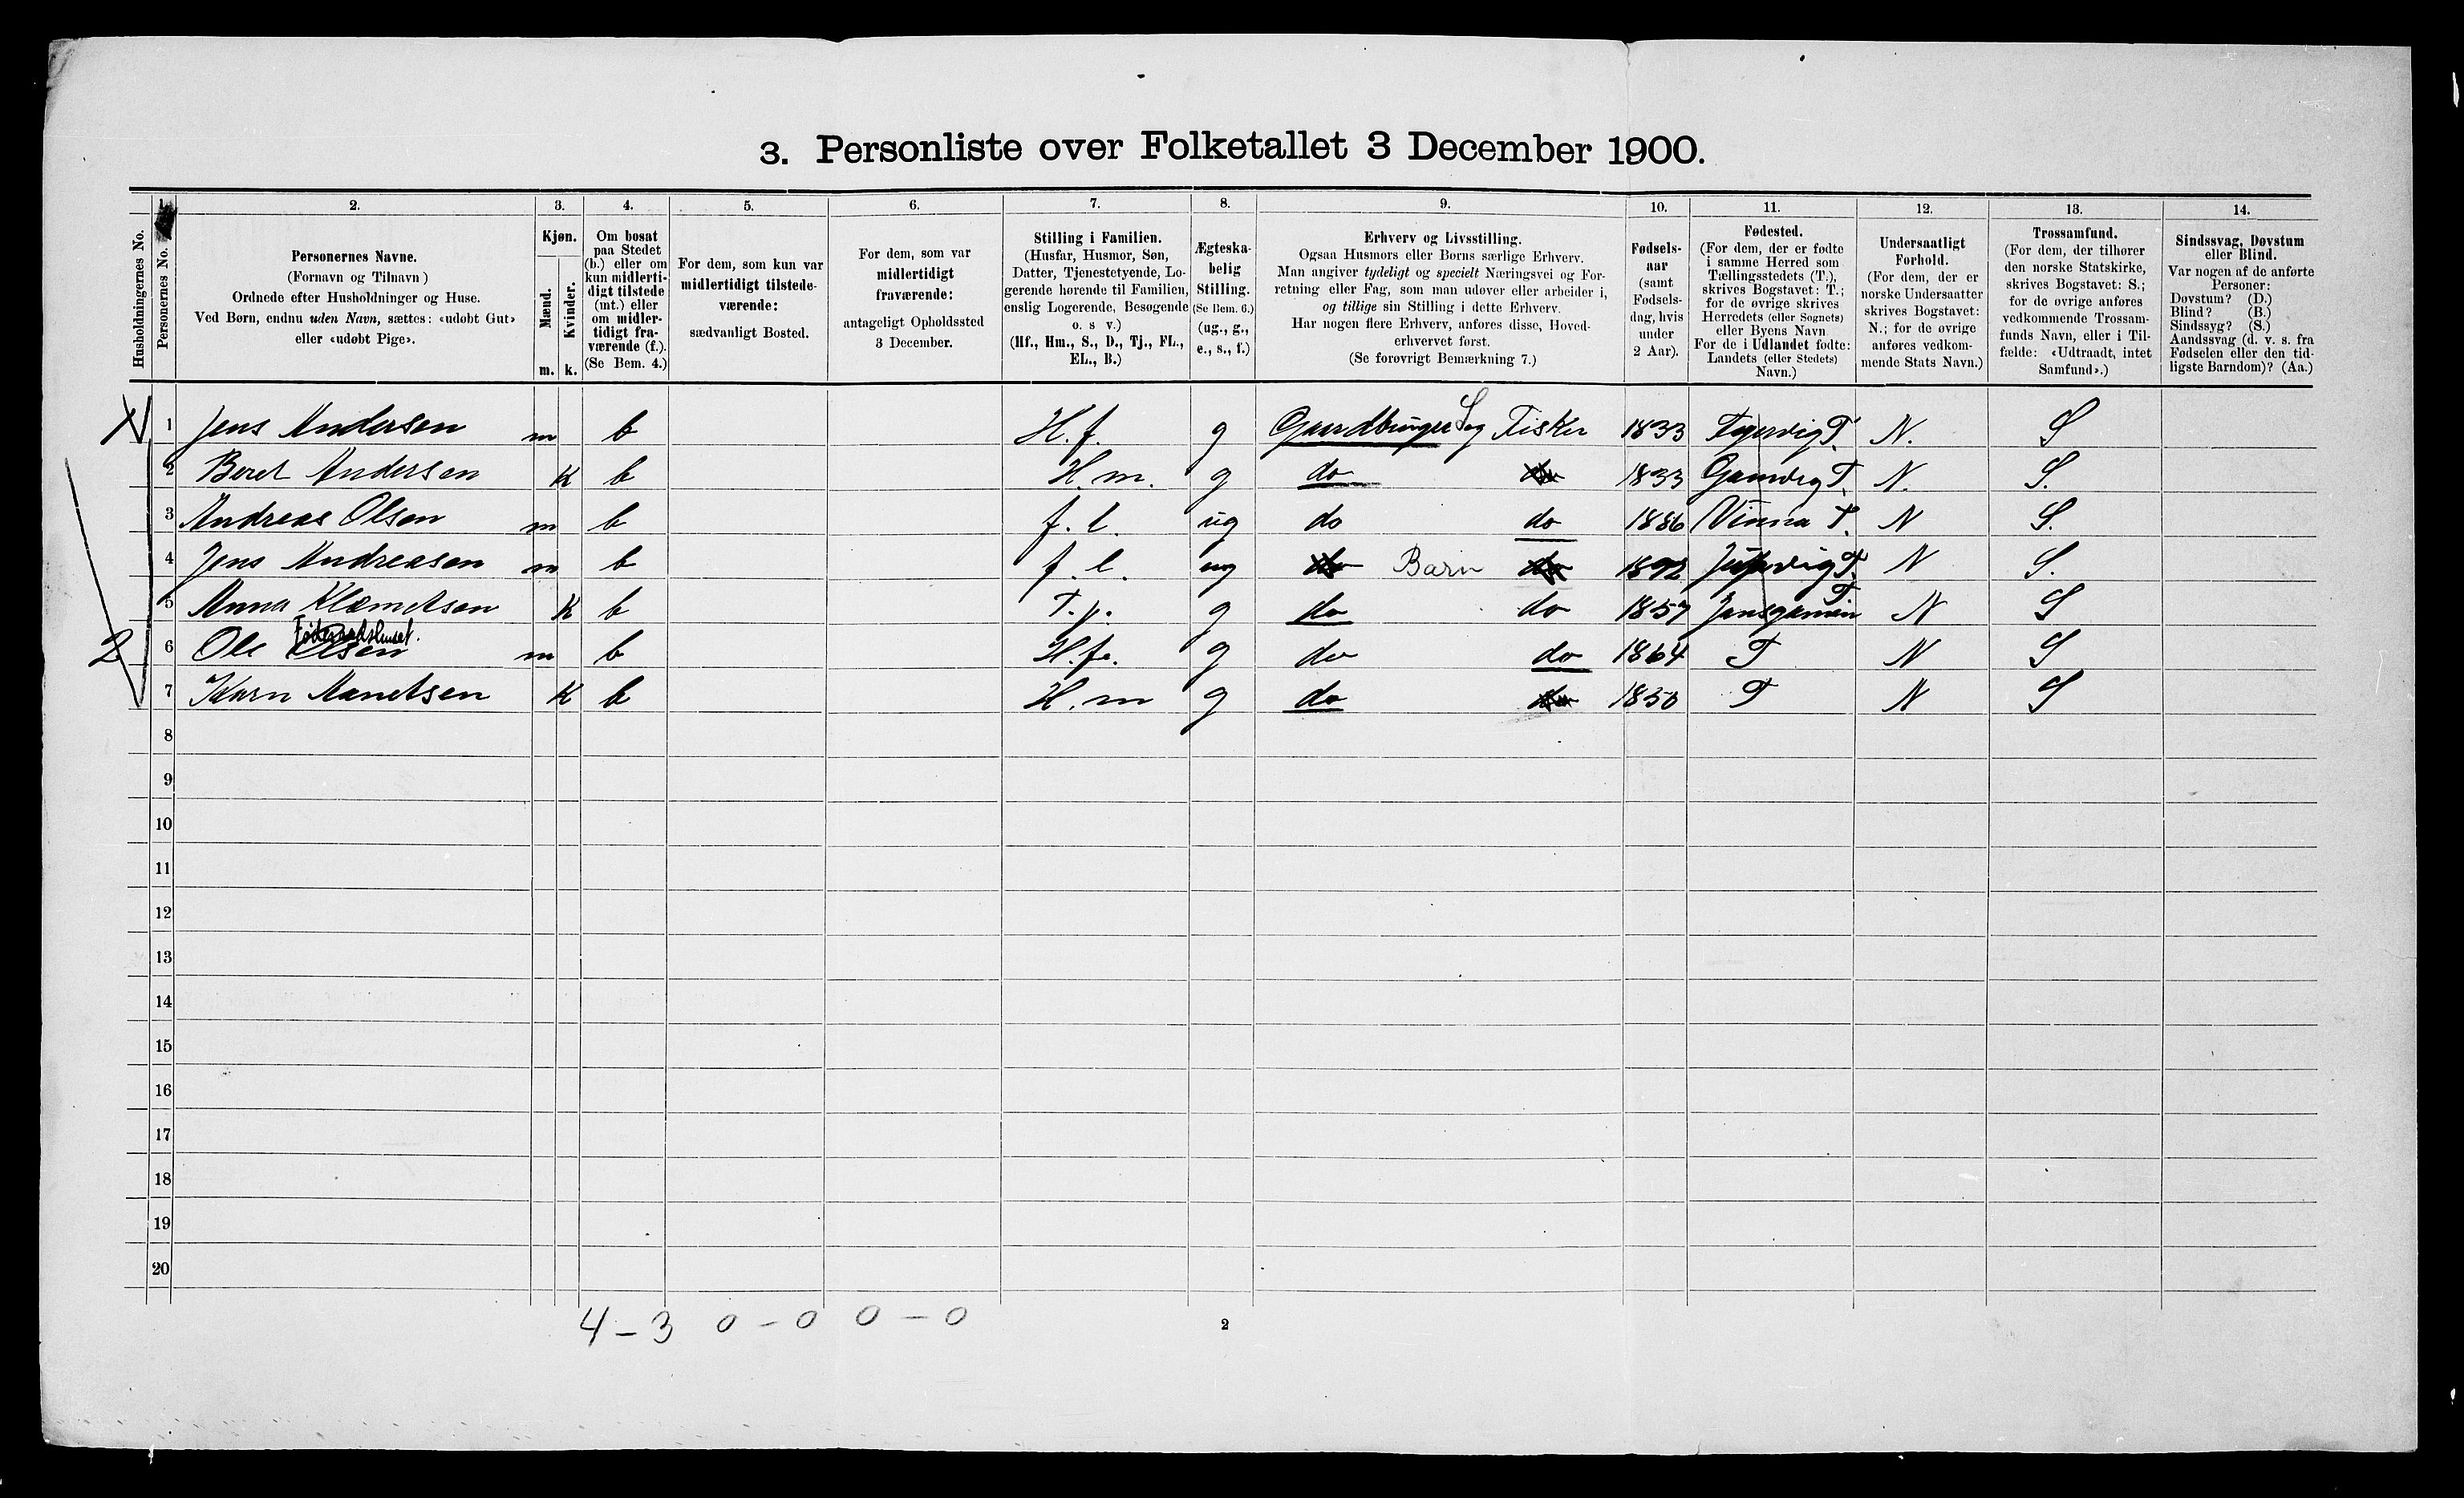 3. Personliste over Folketallet 3 December 1900.
1. 2. 3. 4. 5. 6. 7. 8. 9. 10. 11. 12. 13. 14.
Husholdningernes No.
Personernes No.
Personernes Navne.
(Fornavn og Tilnavn)
Ordnede efter Husholdninger og Huse.
Ved Børn, endnu uden Navn, sættes: «udøbt Gut»
eller «udøbt Pige».
Kjøn.
Mænd.
Kvinder.
m. k.
Om bosat
paa Stedet
(b.) eller om
kun midlerti-
digt tilstede
(mt.) eller
om midler-
tidigt fra-
værende (f.).
(Se Bem. 4.)
For dem, som kun var
midlertidigt tilstede-
værende:
sædvanligt Bosted.
For dem, som var
midlertidigt
fraværende:
antageligt Opholdssted
3 December.
Stilling i Familien.
(Husfar, Husmor, Søn,
Datter, Tjenestetyende, Lo-
gerende hørende til Familien,
enslig Logerende, Besøgende
o. s v.)
(Hf., Hm., S., D., Tj., FL.,
EL., B.)
Ægteska-
belig
Stilling.
(Se Bem. 6.)
(ug., g.,
e., s., f.)
Erhverv og Livsstilling.
Ogsaa Husmors eller Børns særlige Erhverv.
Man angiver tydeligt og specielt Næringsvei og For-
retning eller Fag, som man udøver eller arbeider i,
og tillige sin Stilling i dette Erhverv.
Har nogen flere Erhverv, anføres disse, Hoved-
erhvervet først.
(Se forøvrigt Bemærkning 7.)
Fødsels-
aar
(samt
Fødsels-
dag, hvis
under
2 Aar).
Fødested.
(For dem, der er fødte
i samme Herred som
Tællingsstedets (T.),
skrives Bogstavet: T.;
for de øvrige skrives
Herredets (eller Sognets)
eller Byens Navn
For de i Udlandet fødte:
Landets (eller Stedets)
Navn.)
Undersaatligt
Forhold.
(For dem, der er
norske Undersaatter
skrives Bogstavet:
N.; for de øvrige
anføres vedkom-
mende Stats Navn.)
Trossamfund.
(For dem, der tilhører
den norske Statskirke,
skrives Bogstavet: S.;
for de øvrige anføres
vedkommende Trossam-
funds Navn, eller i Til-
fælde: «Udtraadt, intet
Samfund».)
Sindssvag, Døvstum
eller Blind.
Var nogen af de anførte
Personer:
Døvstum? (D.)
Blind? (B.)
Sindssyg? (S.)
Aandssvag (d. v. s. fra
Fødselen eller den tid-
ligste Barndom)? (Aa.)
1 Jens Andersen m b H.f. g Gaardbruger S og Fisker 1833 T. N. S
2 Beret Andersen k b H.m. g do do 1833 Gamvig T. N. S.
3 Andreas Olsen m b f.l. ug do do 1886 T. N S.
4 Jens Andreasen m b f.l. ug do Barn do 1892 T. N S.
5 Anna Klemetsen k b T.p. g do do 1857 T N S
Føderaadshuset.
2 6 Ole Olsen m b H.f. g do do 1864 T N S
7 Karn k b H.m g do do 1850 T N S
8
9
10
11
12
13
14
15
16
17
18
19
20
4 – 3 0 – 0 0 – 0
2